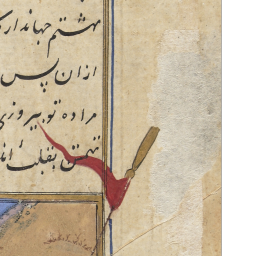 هشتم جهاندار
ازان پس
مراده تو پیروزی
تهمتن بقلب اند